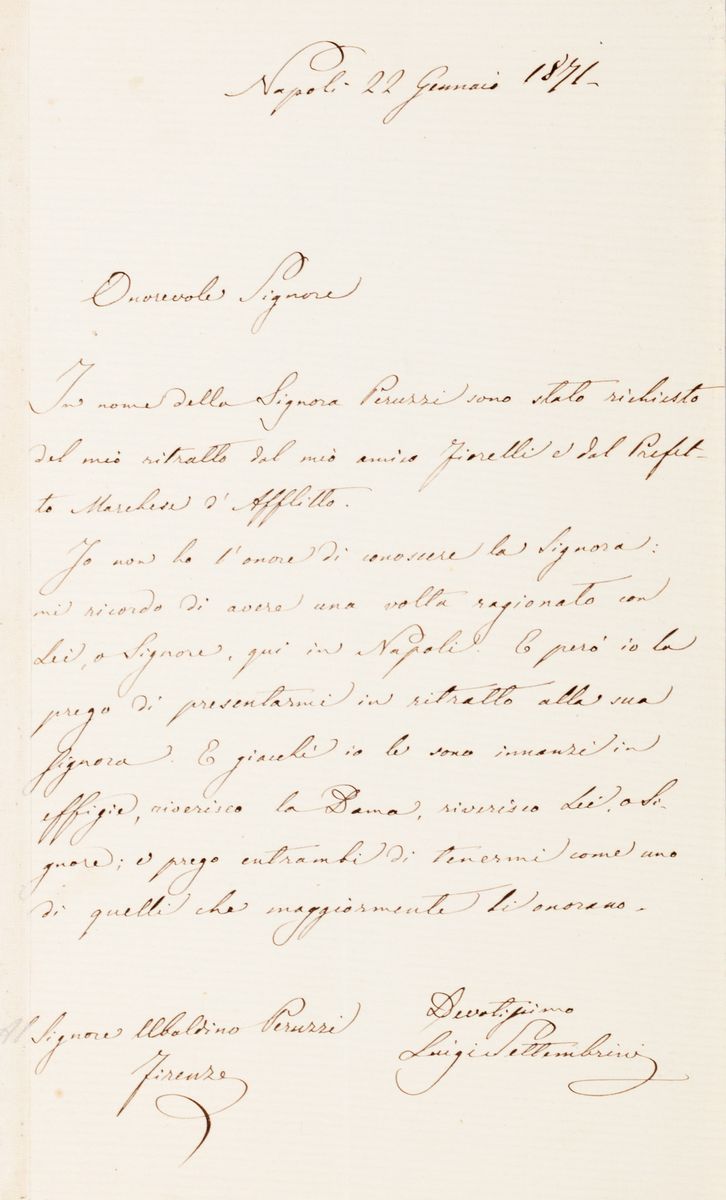 Napoli 22 Gennaio 1871-
Onorevole Signore
In nome della Signora Peruzzi sono stato richiesto
del mio ritratto dal mio amico Fiorelli e dal Prefet-
to Marchese d'Afflitto.
Io non ho l'onore di conoscere la Signora:
mi ricordo di avere una volta ragionato con
Lei, o Signore, qui in Napoli. E però io la
prego di presentarmi in ritratto alla sua
Signora. E giacchè io le sono innanzi in
effigie, riverisco la Dama, riverisco Lei, o Si-
gnore; e prego entrambi di tenermi come uno
di quelli che maggiormente li onorano.
Al Signore Ubaldino Peruzzi
Firenze
Devotissimo
Luigi Settembrini